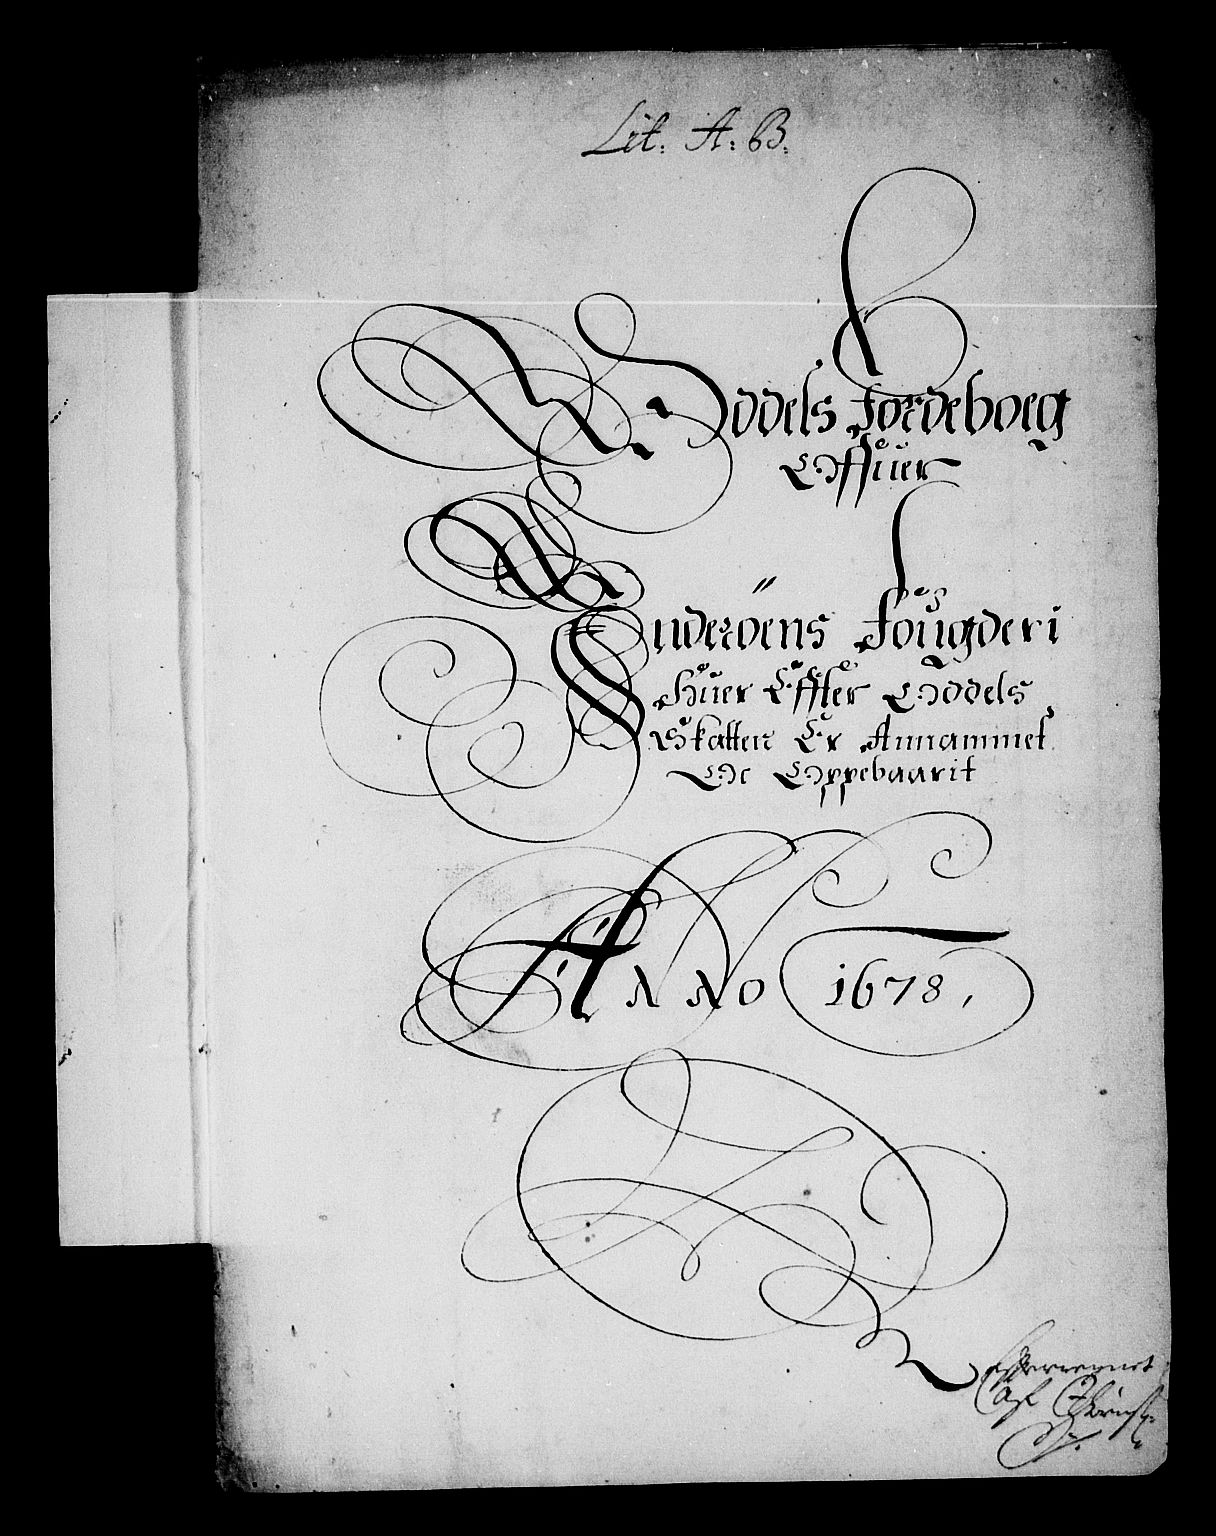 Lit. A. B.
Oddels Jordeboeg
Offuer
Inderöens Fougderi
Huer Effter Oddels
Skatten Er Annammet
Oc Oppebaarit
Anno 1678.